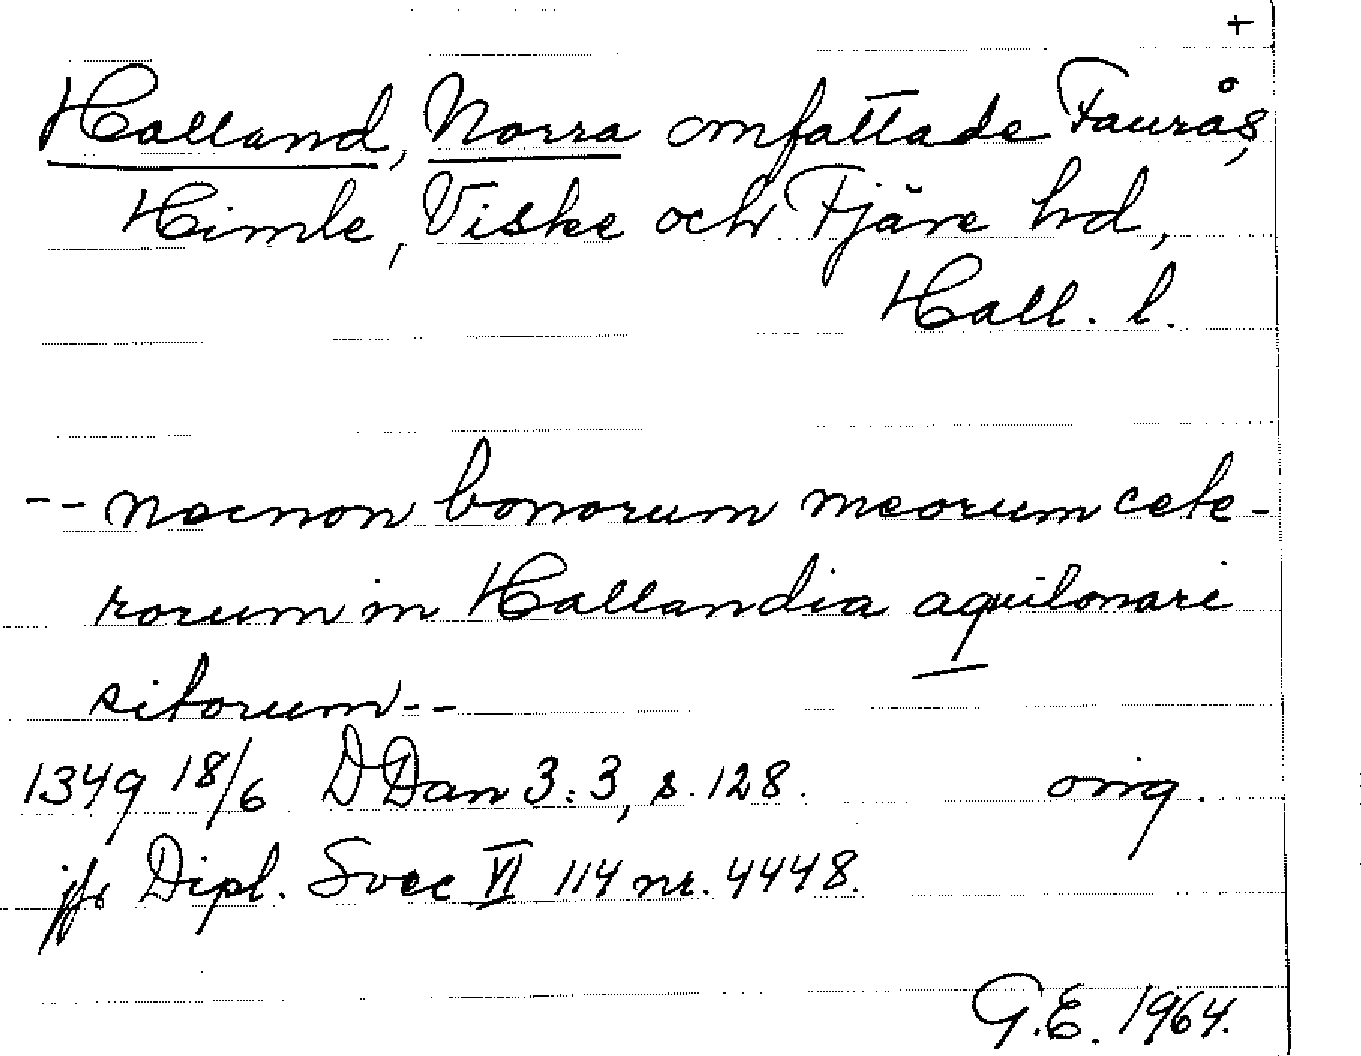 +
Halland, Norra omfattade Faurås,
Himle, Viske och Fjäre hd,
Hall. l.
-- necnon bonorum meorum cete-
rorum in Hallandia aquilonari
sitorum --
1349 18/6 D Dan 3:3, s. 128. orig.
jfr Dipl. Svec VI 114 nr. 4448.
G.E. 1964.